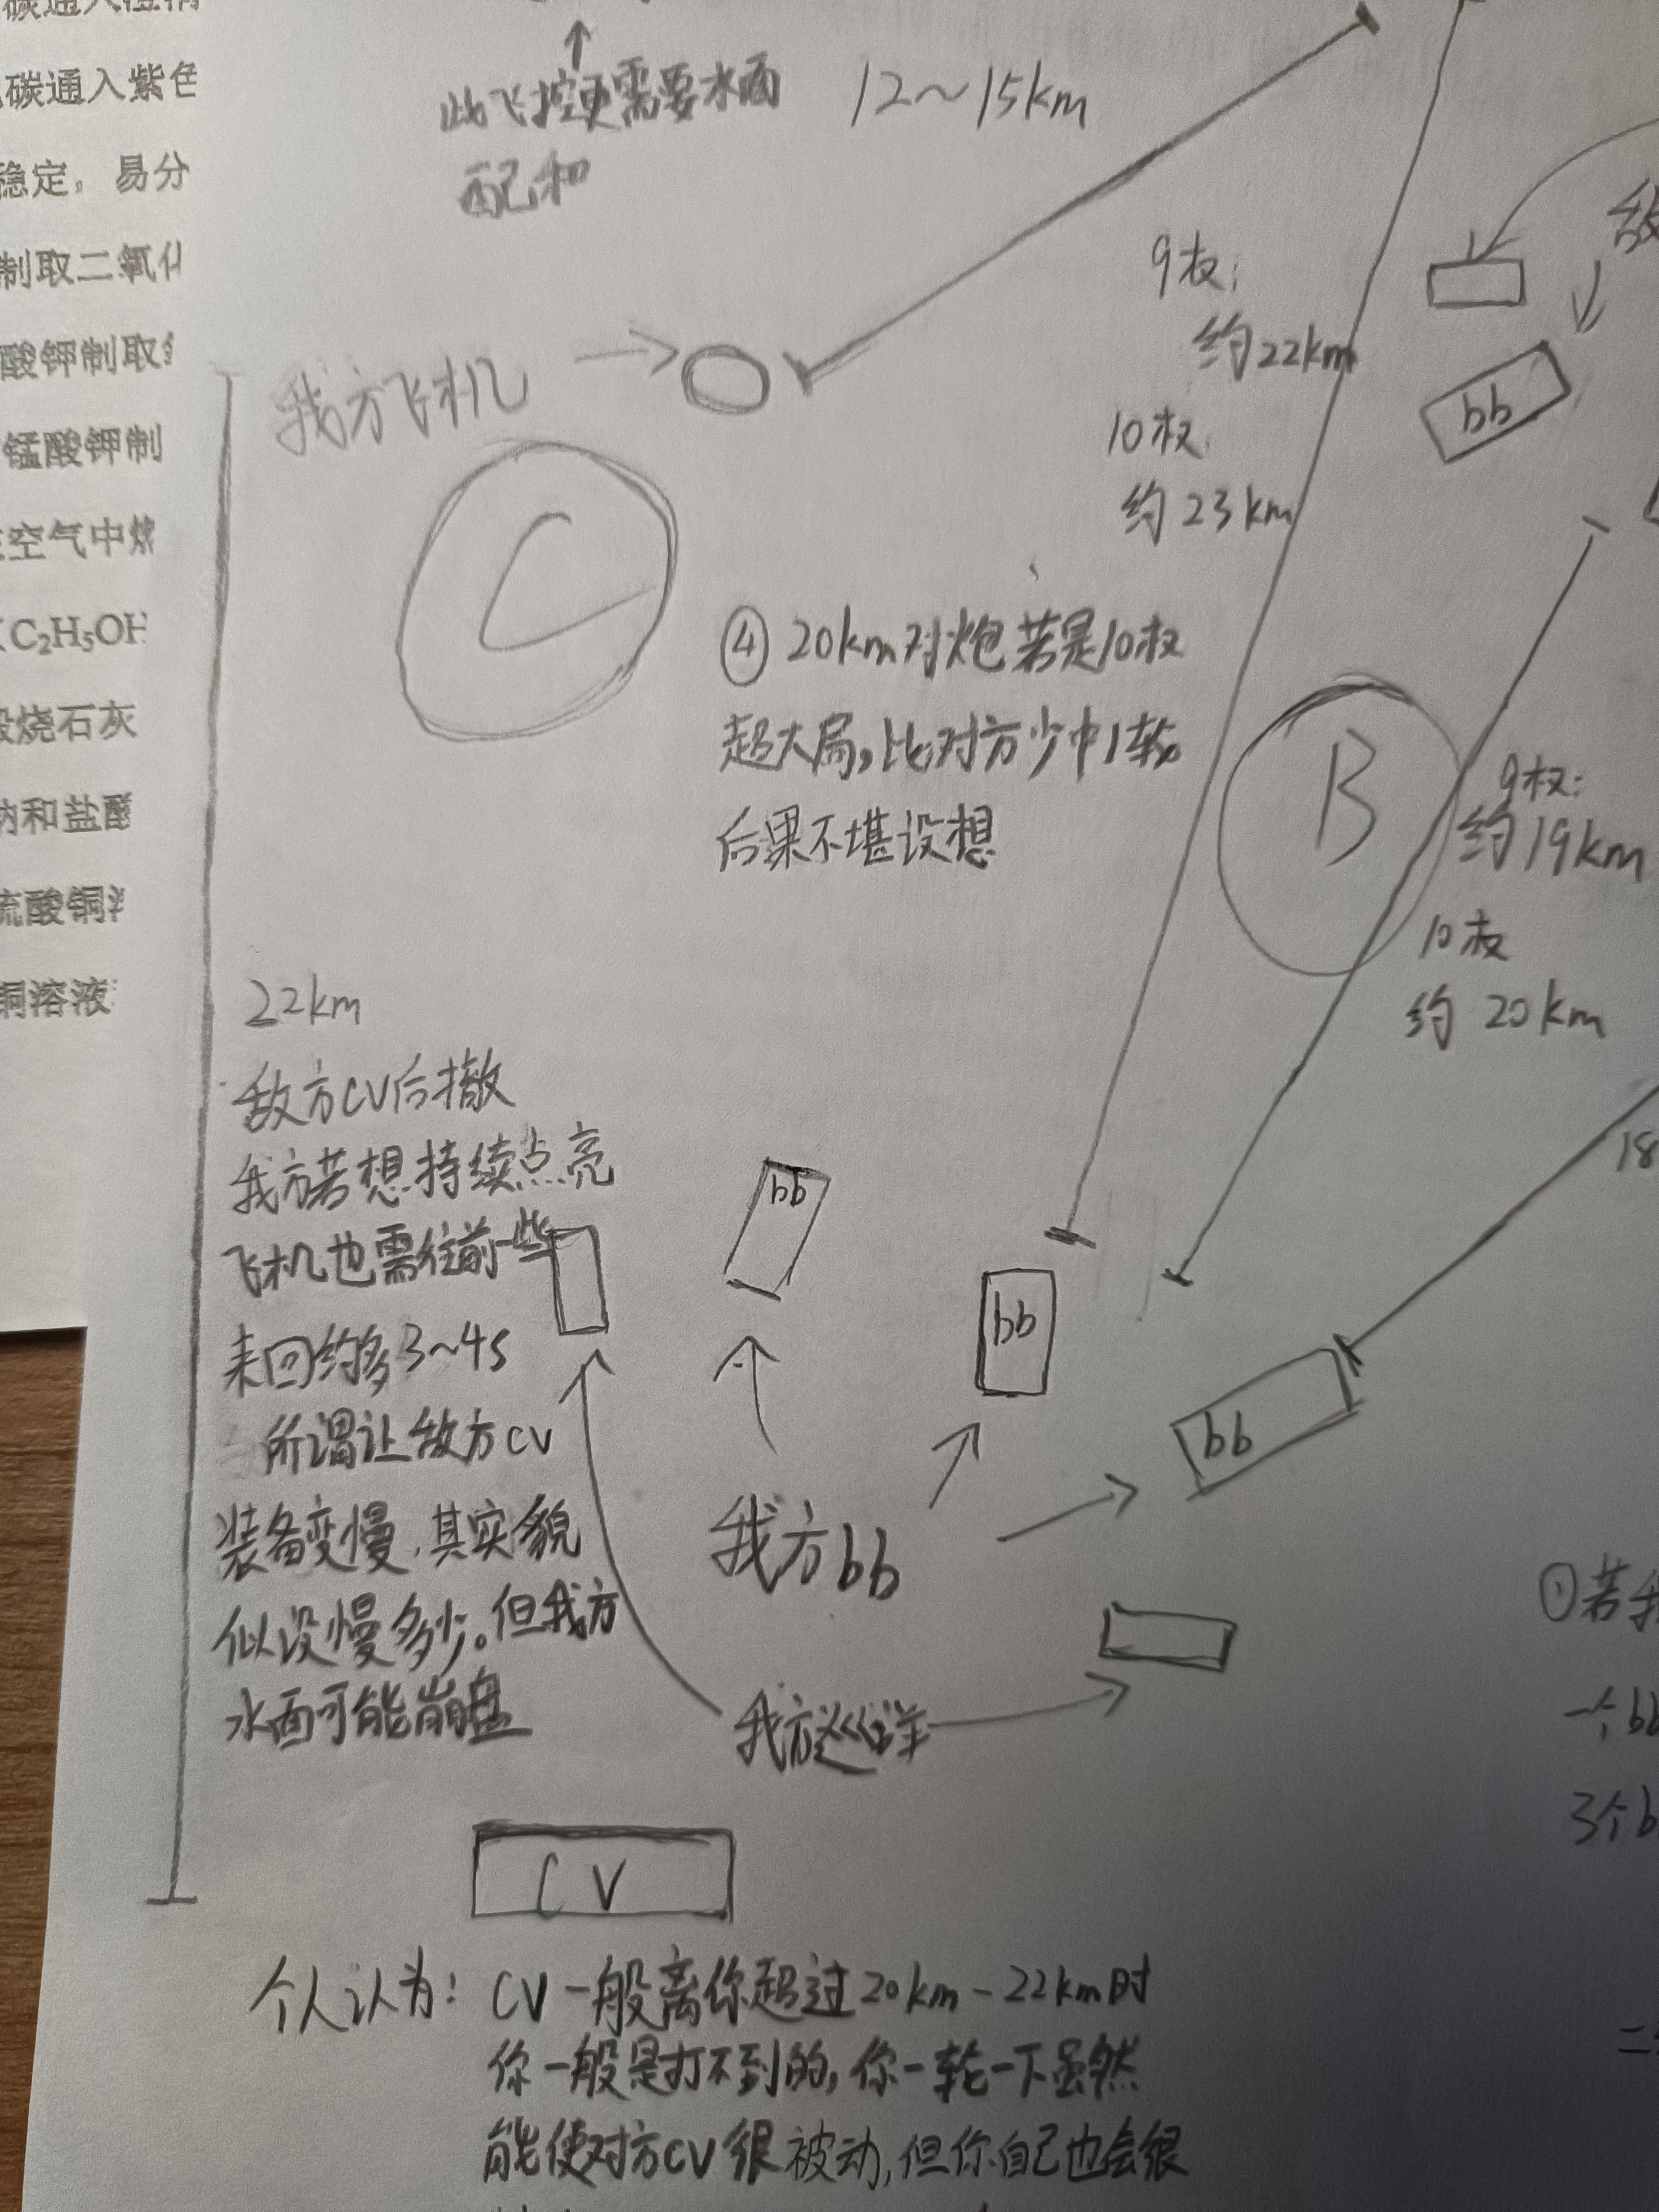 碳通入紫色
稳定，易分
制取二氧化
酸钾制取氧
锰酸钾制
空气中燃
C₂H₅OH
煅烧石灰
钠和盐酸
硫酸铜溶
铜溶液
此飞控更需要水面
配和
12～15km
敌
9枚：
约22km
我方飞机
bb
10枚
约23km
C
④20km对炮若是10枚
超大局，比对方少中1轮
后果不堪设想
B
9枚：
约19km
10枚
约20km
22km
敌方CV后撤
我方若想持续点亮
飞机也需往前一些
来回约多3～4s
所谓让敌方CV
装备变慢，其实貌
似没慢多少。但我方
水面可能崩盘
18
bb
bb
bb
我方bb
我方巡洋
①若我
一个bb
3个b
CV
个人认为：CV一般离你超过20km-22km时
你一般是打不到的，你一轮一下虽然
能使对方CV很被动，但你自己也会很